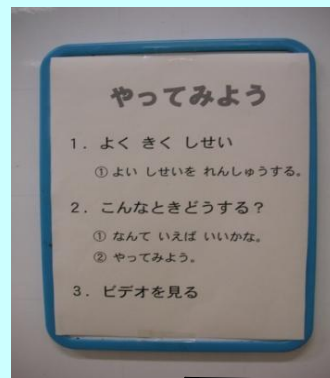 やってみよう
1. よく きく しせい
① よい しせいを れんしゅうする。
2. こんなときどうする？
① なんて いえば いいかな。
② やってみよう。
3. ビデオを見る